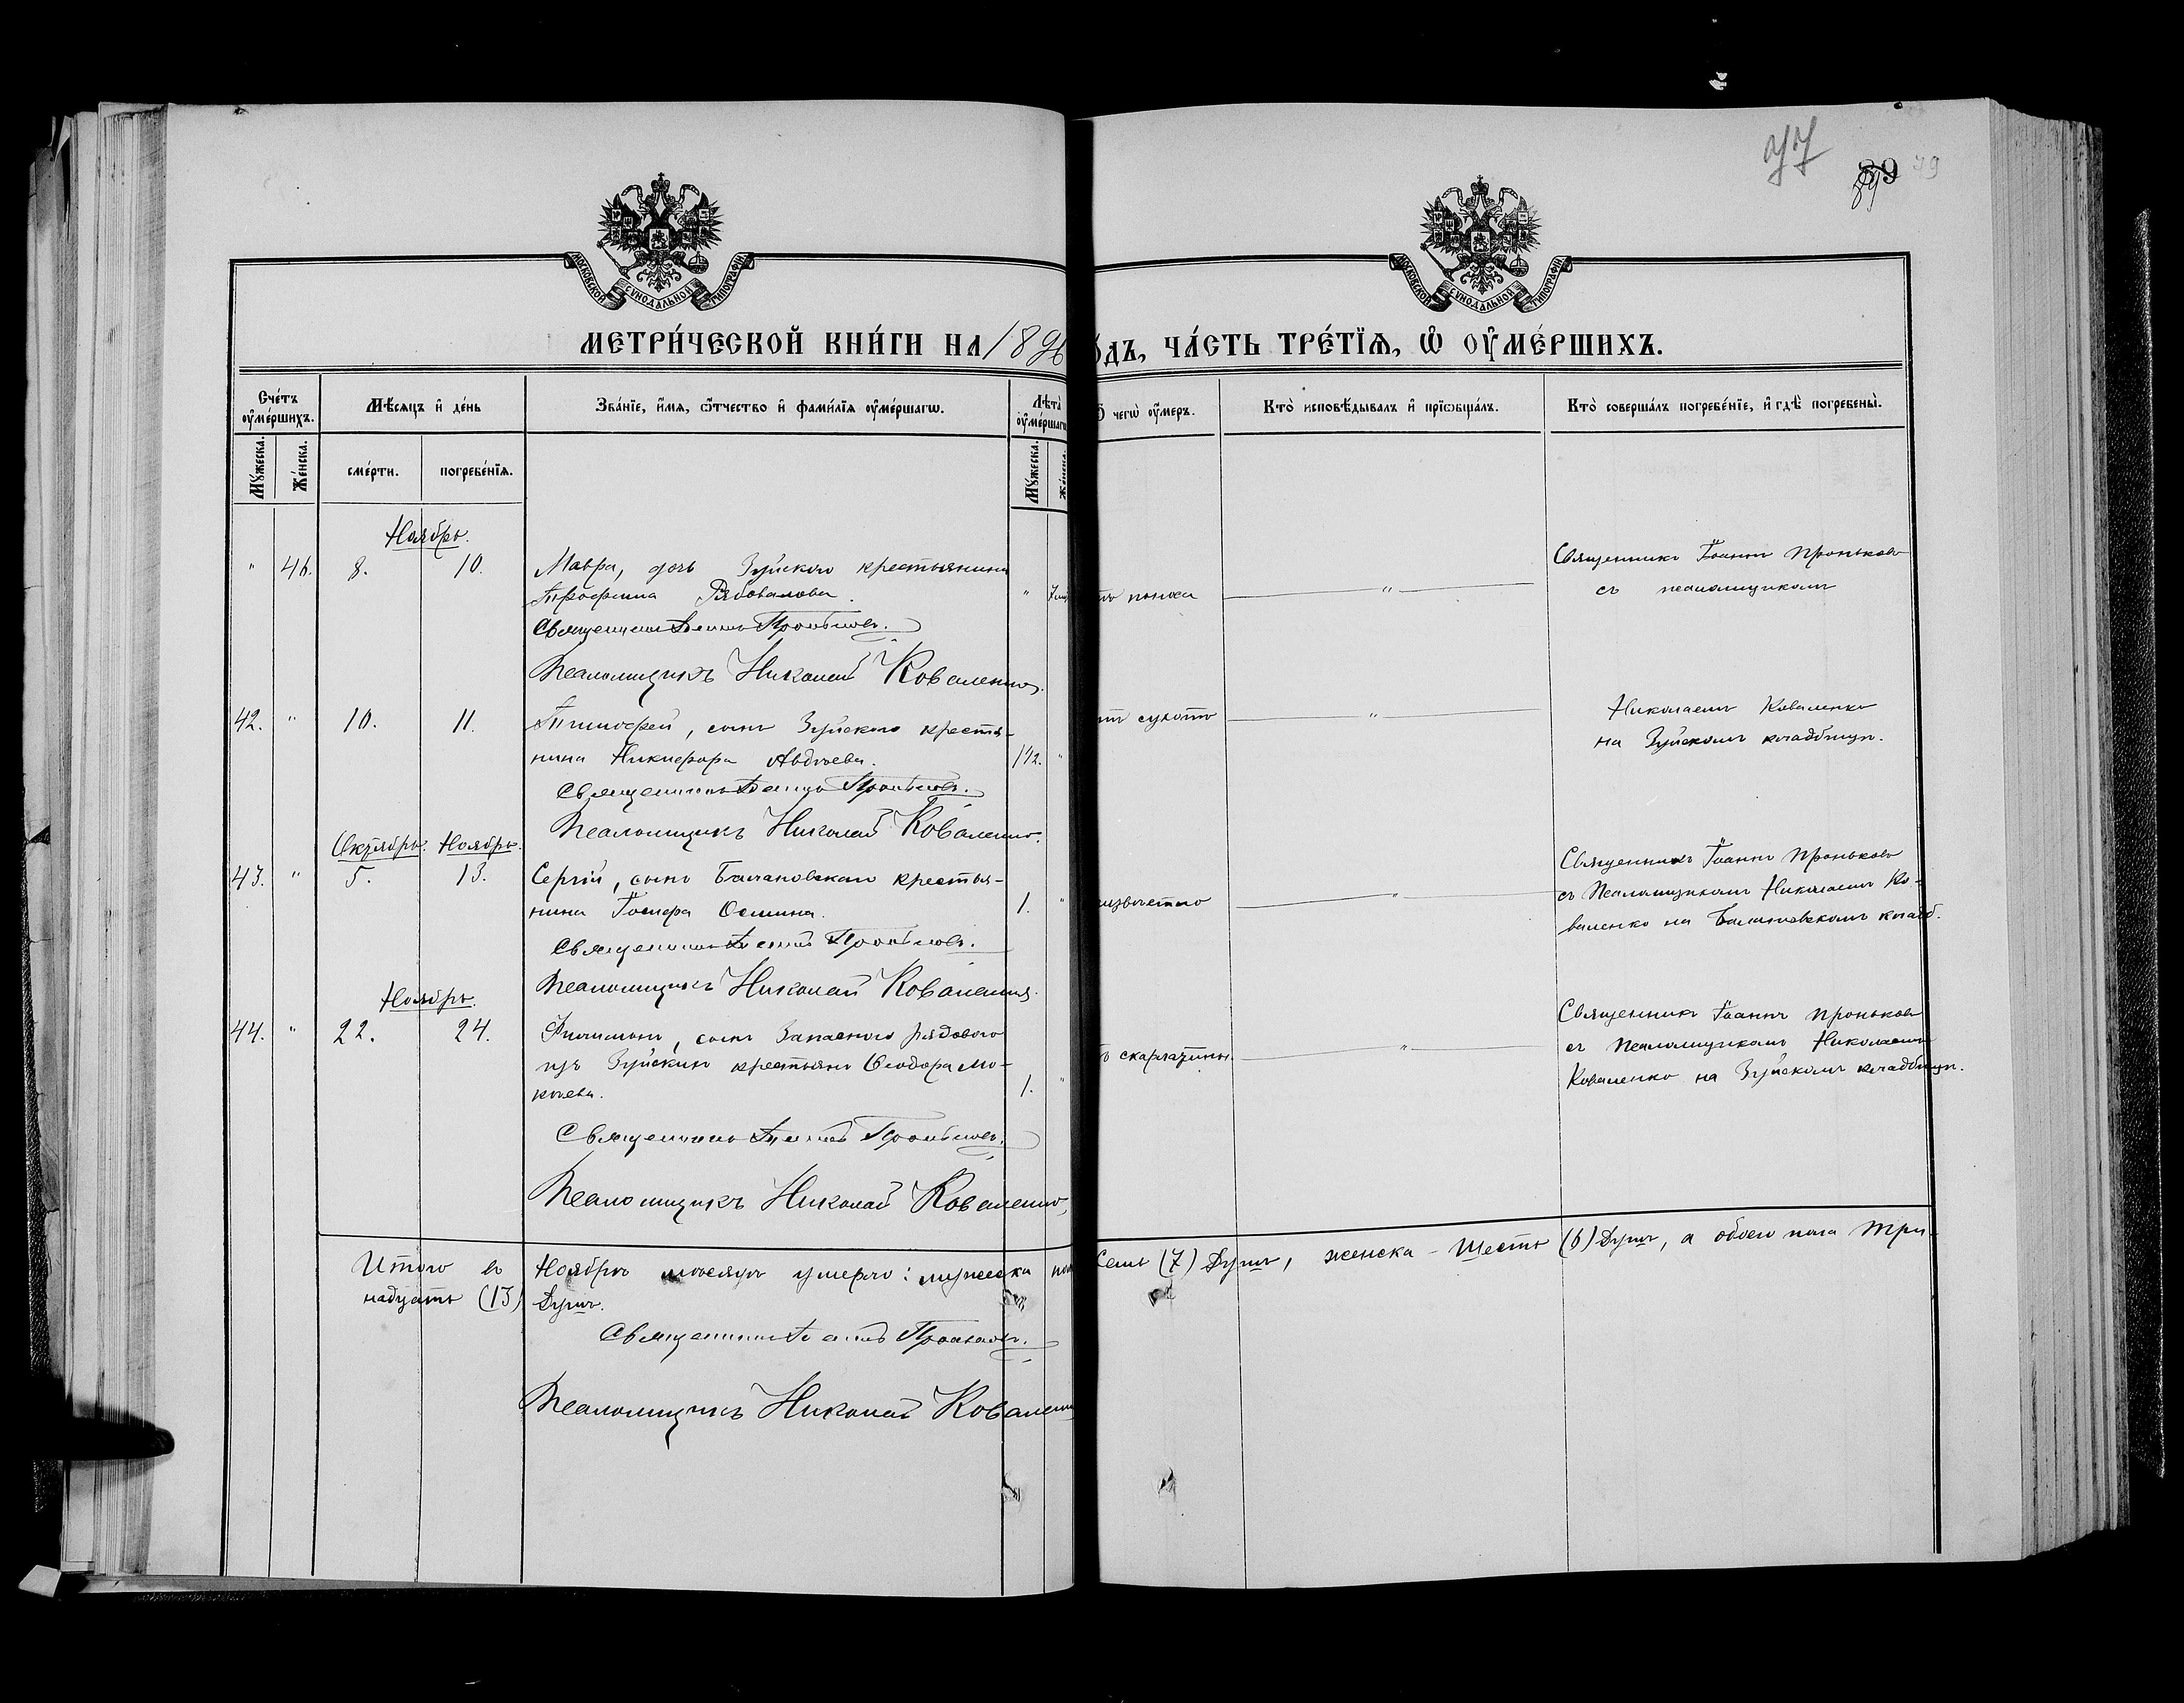 77
89 79
89
МОСКОВСКОЙ СУНОДАЛЬНОЙ ТИПОГРАФІИ
МОСКОВСКОЙ СУНОДАЛЬНОЙ ТИПОГРАФІИ
МЕТРИ́ЧЕСКОЙ КНИ́ГИ НА 1896
ОДЪ, ЧА́СТЬ ТРЕ́ТІѦ, Ѡ ОУМЕ́РШИХЪ.
Сче́тъ оуме́ршихъ.
Мѣ́сѧцъ и де́нь
Зва́нїе, и́мѧ, ѻ́тчество и фами́лїѧ оуме́ршагѡ.
Лѣта̀ оуме́ршагѡ
ѿ чегѡ̀ оу́меръ.
Кто̀ исповѣ́дывалъ и прїѡбща́лъ.
Кто̀ соверша́лъ погребе́нїе, и гдѣ̀ погребены̀.
Мꙋ́жеска.
Же́нска.
сме́рти.
погребе́нїѧ.
Мꙋ́жеска.
Же́нска.
Ноябрь.
" 46. 8. 10. Мавра, дочь Зуйскаго крестьянина
Трофима Рябовалова. "
Священникъ Іоаннъ Проньковъ.
Псаломщикъ Николай Коваленко.
поноса "
Священникъ Іоаннъ Проньковъ
съ псаломщикомъ
42. " 10. 11. Тимофей, сынъ Зуйскаго крестья-
нина Никифора Авдѣева. 1/42. "
Священникъ Іоаннъ Проньковъ.
Псаломщикъ Николай Коваленко.
отъ сухотъ "
Николаемъ Коваленко
на Зуйскомъ кладбищѣ.
Октябрь. Ноябрь.
43. " 5. 13. Сергій, сынъ Балановскаго крестья-
нина Іосифа Осмина. 1. "
Священникъ Іоаннъ Проньковъ.
Псаломщикъ Николай Коваленко.
неизвѣстно "
Священникъ Іоаннъ Проньковъ
съ Псаломщикомъ Николаемъ Ко-
валенко на Балановскомъ кладб.
Ноябрь.
44. " 22. 24. Филимонъ, сынъ Запаснаго рядового
изъ Зуйскихъ крестьянъ Ѳеодора Мо-
кѣева. 1. "
Священникъ Іоаннъ Проньковъ.
Псаломщикъ Николай Коваленко.
ъ скарлатины "
Священникъ Іоаннъ Проньковъ
съ Псаломщикомъ Николаемъ
Коваленко на Зуйскомъ кладбищѣ.
Итого въ Ноябрѣ мѣсяцѣ умерло: мужеска пола
Семь (7) Душъ, женска – Шесть (6) Душъ, а обоего пола Три-
надцать (13) Душъ.
Священникъ Іоаннъ Проньковъ.
Псаломщикъ Николай Коваленко